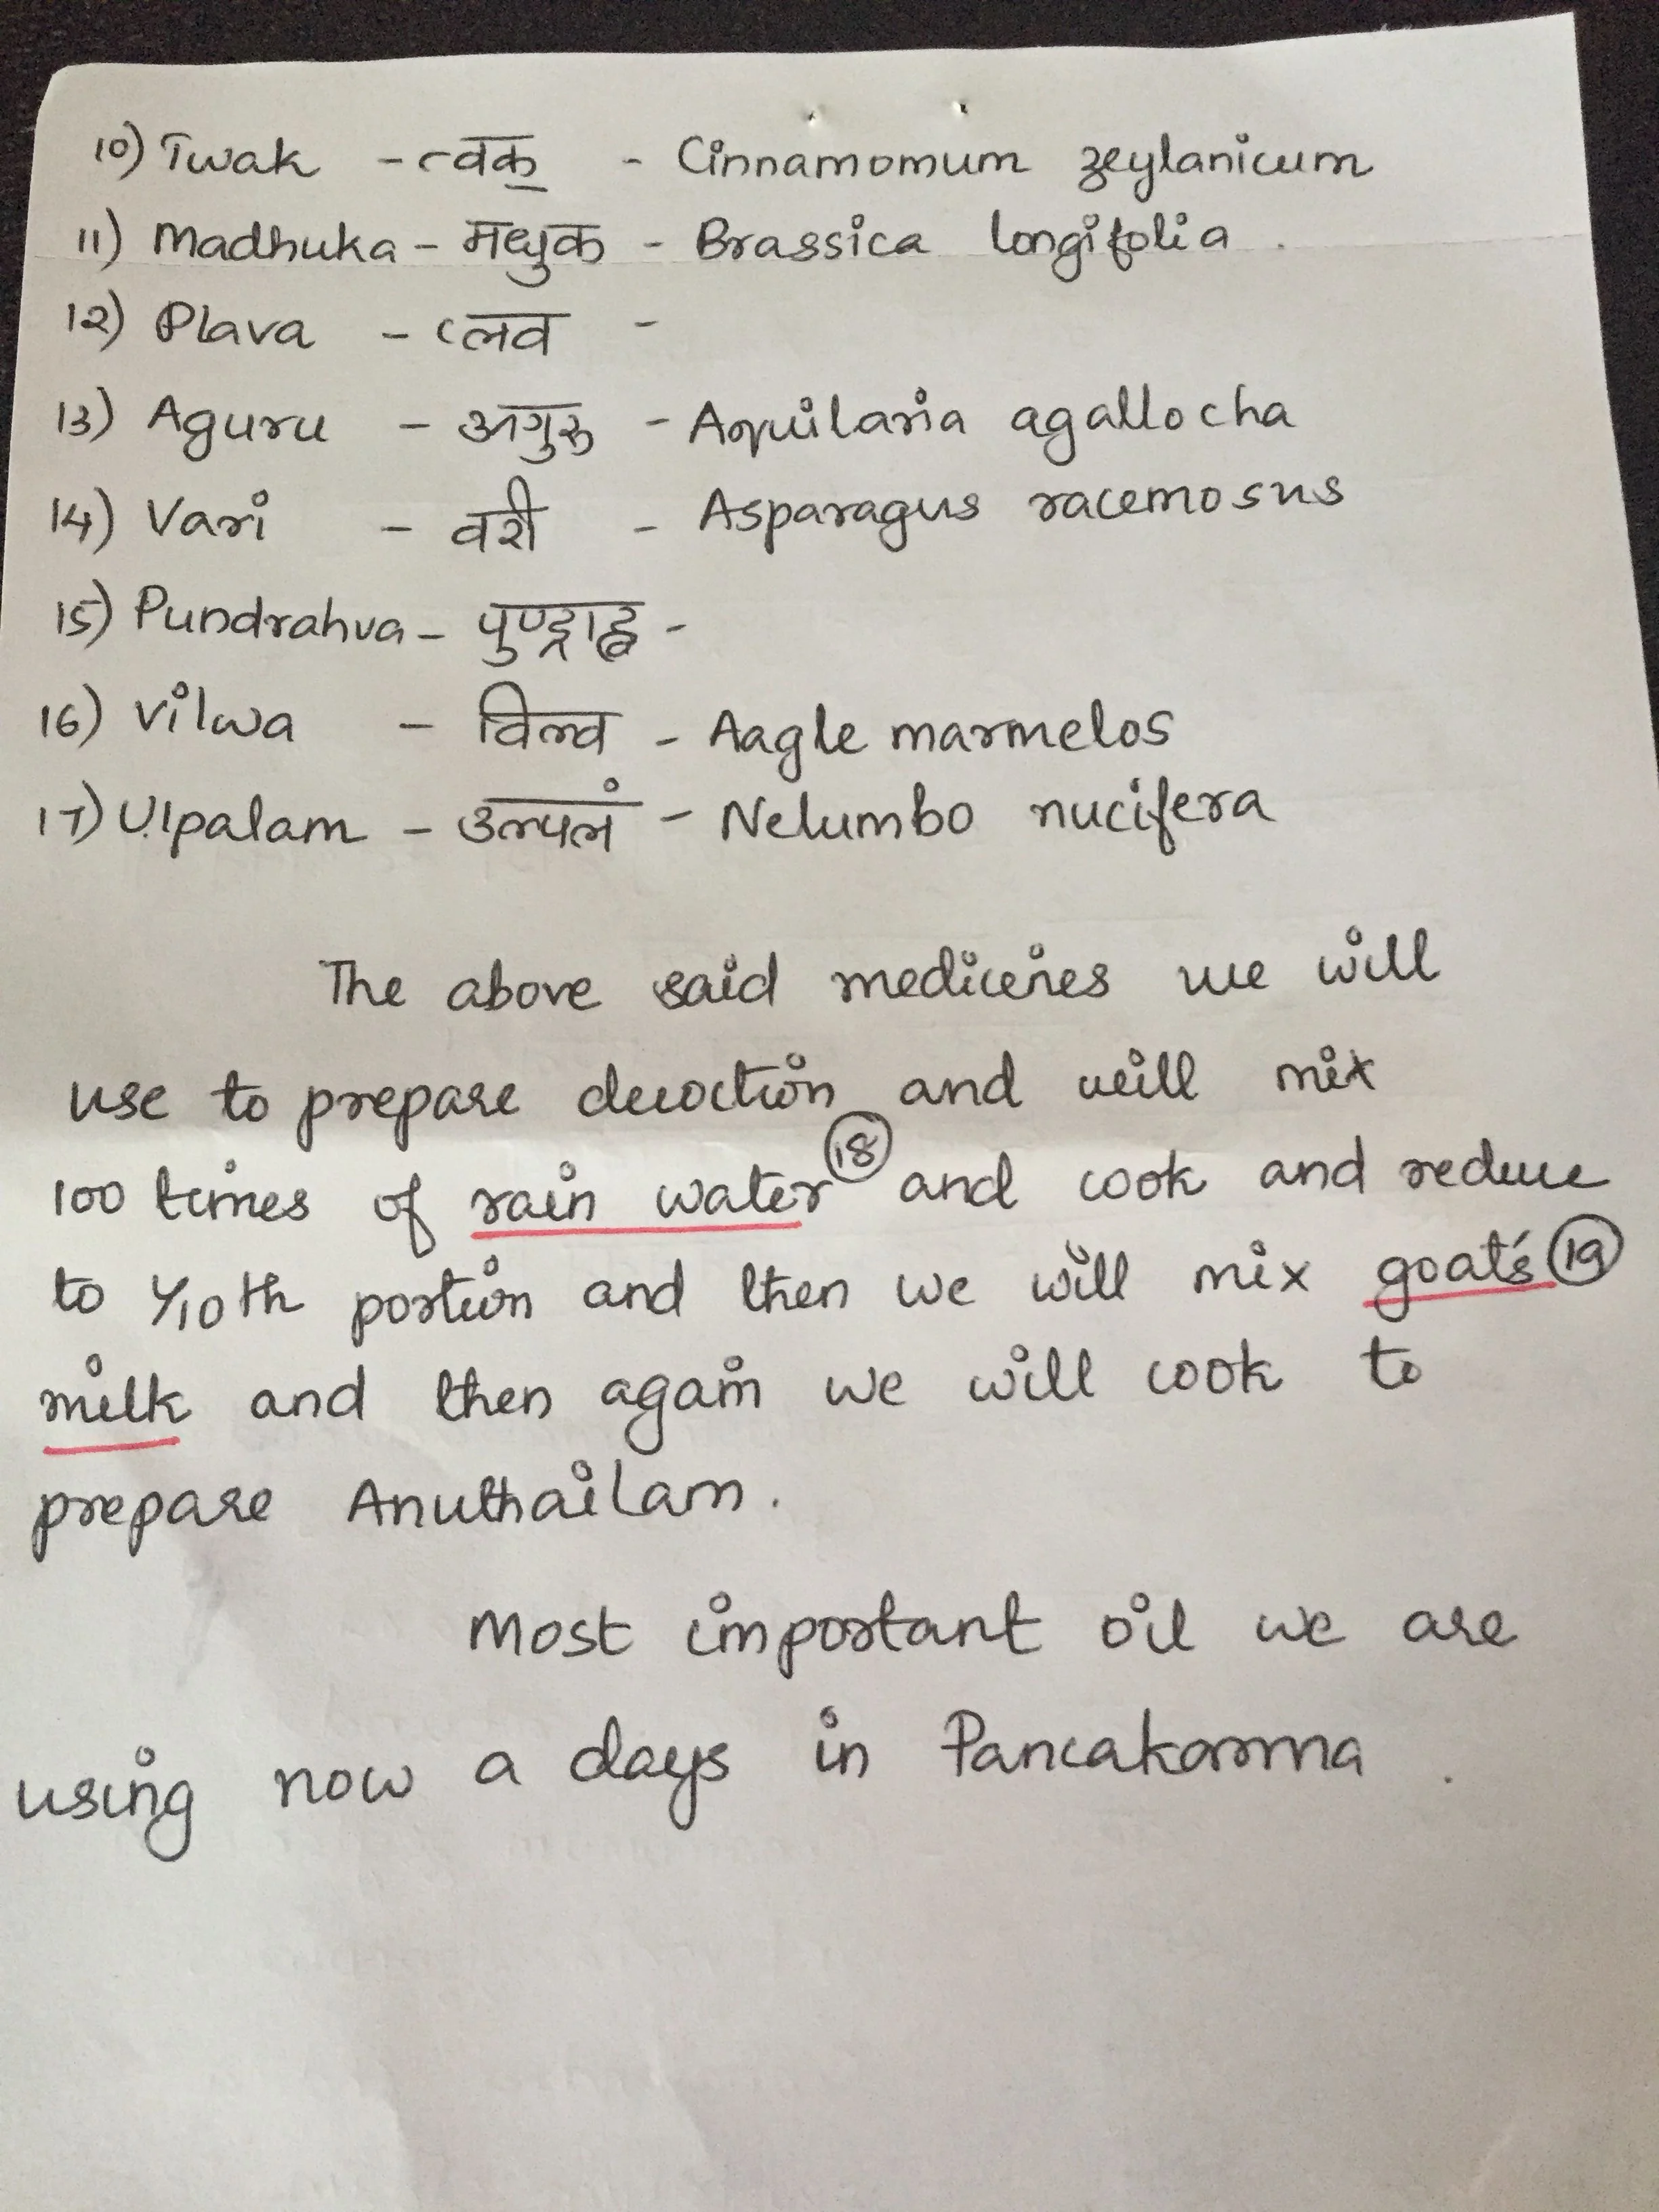 10) Twak - त्वक् - Cinnamomum zeylanicum
11) Madhuka - मधुक - Brassica longifolia .
12) Plava - प्लव -
13) Aguru - अगुरु - Aquilaria agallocha
14) Vari - वरी - Asparagus racemosus
15) Pundrahva - पुण्ड्राह्व -
16) Vilwa - विल्व - Aagle marmelos
17) Ulpalam - उल्पलं - Nelumbo nucifera
The above said medicines we will
use to prepare decoction and will mix
100 times of rain water (18) and cook and reduce
to 1/10th portion and then we will mix goat's (19)
milk and then again we will cook to
prepare Anuthailam .
Most important oil we are
using now a days in Pancakarma .